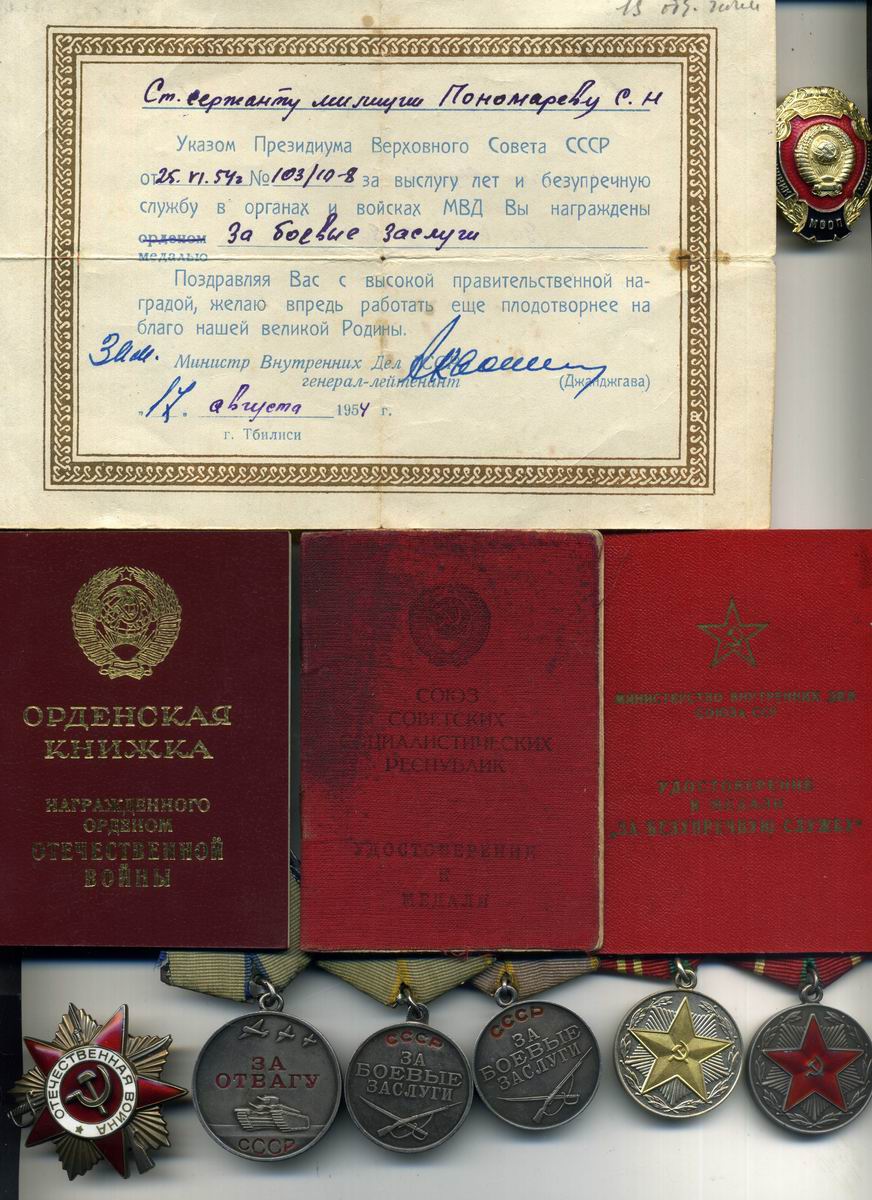 13 отд. милиции
Ст. сержанту милиции Пономареву С. Н
Указом Президиума Верховного Совета СССР
от 25.VI.54г № 103/10-8 за выслугу лет и безупречную
службу в органах и войсках МВД Вы награждены
орденом За боевые заслуги
медалью
Поздравляя Вас с высокой правительственной на-
градой, желаю впредь работать еще плодотворнее на
благо нашей великой Родины.
Зам. Министр Внутренних Дел
генерал-лейтенант (Джанджгава)
„17" августа 1954 г.
г. Тбилиси
МООП
ОРДЕНСКАЯ
КНИЖКА
НАГРАЖДЕННОГО
ОРДЕНОМ
ОТЕЧЕСТВЕННОЙ
ВОЙНЫ
СОЮЗ
СОВЕТСКИХ
СОЦИАЛИСТИЧЕСКИХ
РЕСПУБЛИК
УДОСТОВЕРЕНИЕ
К
МЕДАЛИ
МИНИСТЕРСТВО ВНУТРЕННИХ ДЕЛ
СОЮЗА ССР
УДОСТОВЕРЕНИЕ
К МЕДАЛИ
„ЗА БЕЗУПРЕЧНУЮ СЛУЖБУ"
ОТЕЧЕСТВЕННАЯ ВОЙНА
ЗА
ОТВАГУ
СССР
СССР
ЗА
БОЕВЫЕ
ЗАСЛУГИ
СССР
ЗА
БОЕВЫЕ
ЗАСЛУГИ